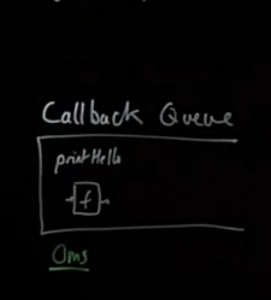 Callback Queue
printHello
f
0ms